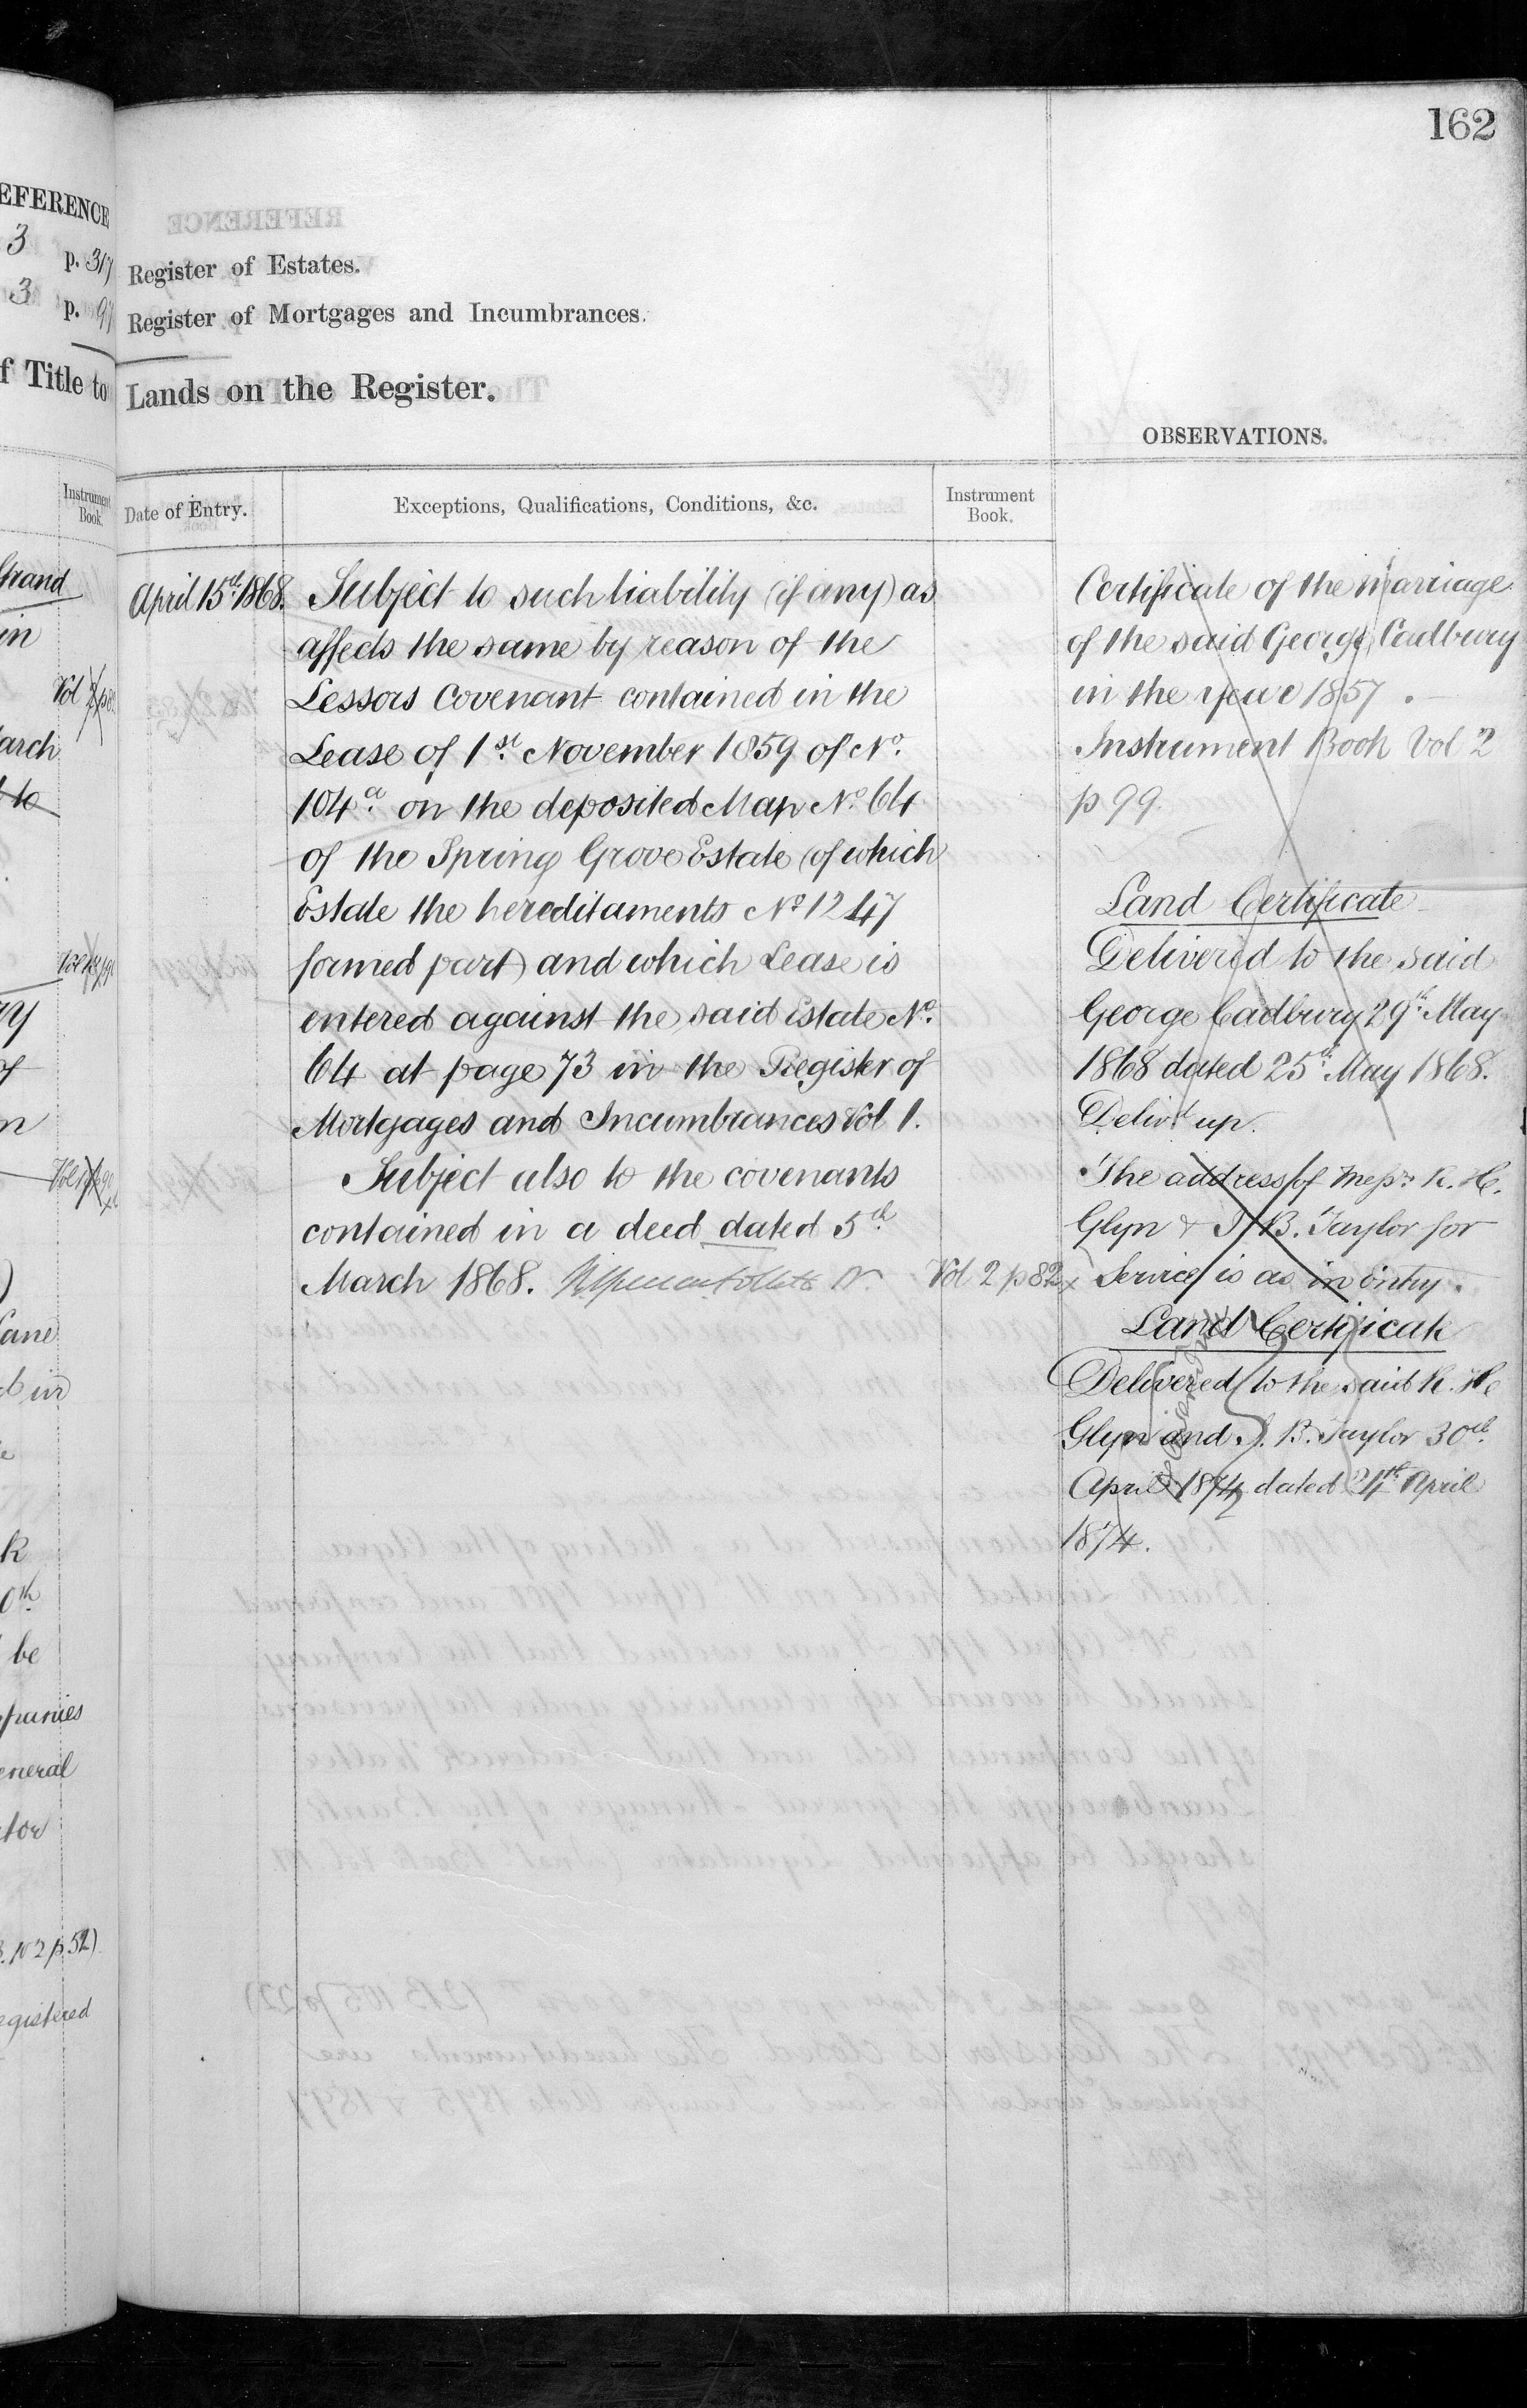 162
EFERENCE
3 p. 317
3 p. 97
f Title to
Instrument
Book.
Strand
in
Vol
arch
to
of
n
Lane
d in
k
0th
be
mpanies
eneral
ator
B. 102 p. 52)
egistered
Register of Estates.
Register of Mortgages and Incumbrances.
Lands on the Register.
OBSERVATIONS.
Date of Entry.
Exceptions, Qualifications, Conditions, &c.
Instrument
Book.
April 15th 1868. Subject to such liability (if any) as
affects the same by reason of the
Lessors Covenant contained in the
Lease of 1st November 1859 of No.
104a on the deposited Map No. 64
of the Spring Grove Estate (of which
Estate the hereditaments No 1247
formed part) and which Lease is
entered against the said Estate No.
64 at page 73 in the Register of
Mortgages and Incumbrances Vol 1.
Subject also to the covenants
contained in a deed dated 5th
March 1868. Vol 2 p 82
Certificate of the marriage
of the said George Cadbury
in the year 1857.
Instrument Book Vol 2
p 99.
Land Certificate
Delivered to the said
George Cadbury 29th May
1868 dated 25th May 1868.
Delivd up.
The address of Messrs R. H.
Glyn & J. B. Taylor for
Service is as in entry.
Land Certificate
Delivered to the said R. H.
Glyn and J. B. Taylor 30th
April 1874 dated 24th April
1874.